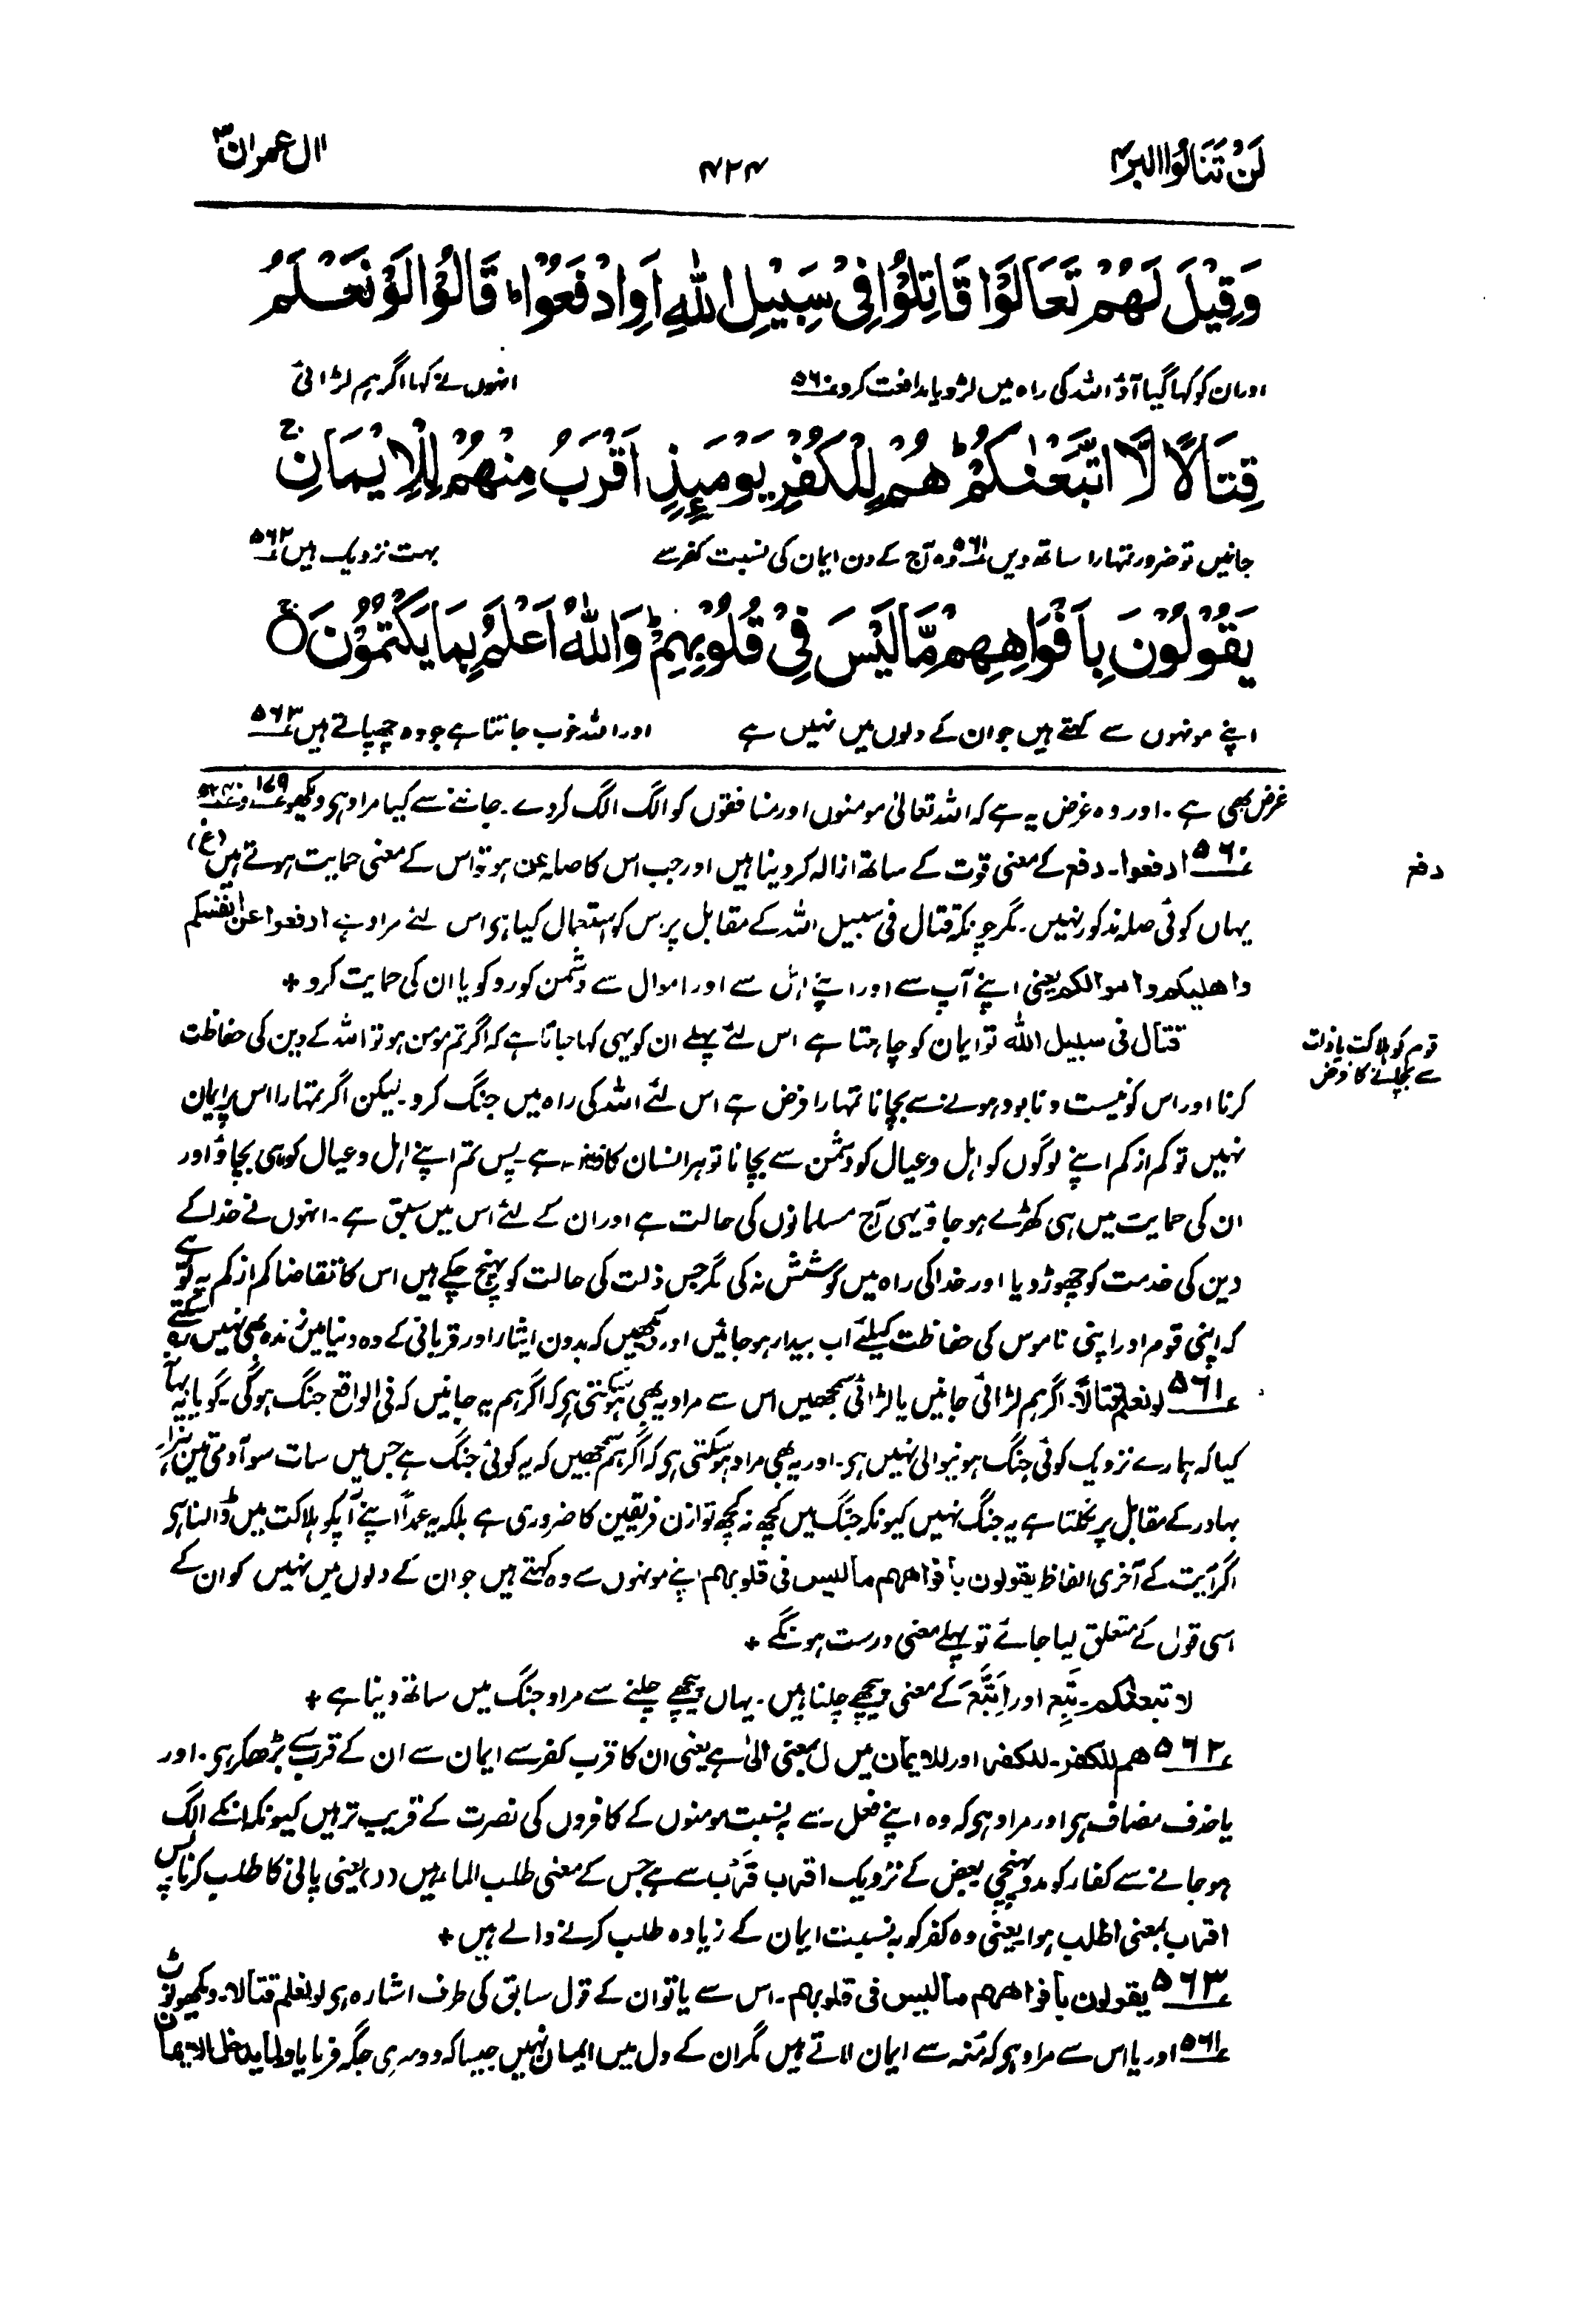 لَنْ تَنَالُوا البر۴
۴۲۴
اٰل عمران۳
وَقِيْلَ لَهُمْ تَعَالَوْا قَاتِلُوْا فِيْ سَبِيْلِ اللّٰهِ اَوِ ادْفَعُوْا ؕ قَالُوْا لَوْ نَعْلَمُ
اوران کو کہا گیا آؤ اللہ کی راہ میں لڑو یا مدافعت کرو ۵۶۰ انہوں نے کہا اگر ہم لڑائی
قِتَالًا لَّا اتَّبَعْنٰكُمْ ؕ هُمْ لِلْكُفْرِ يَوْمَئِذٍ اَقْرَبُ مِنْهُمْ لِلْاِيْمَانِ ۚ
جانیں تو ضرور تمہارا ساتھ دیں ۵۶۱ وہ آج کے دن ایمان کی نسبت کفر سے بہت نزدیک ہیں ۵۶۲
يَقُوْلُوْنَ بِاَفْوَاهِهِمْ مَّا لَيْسَ فِيْ قُلُوْبِهِمْ ؕ وَاللّٰهُ اَعْلَمُ بِمَا يَكْتُمُوْنَ ۚ
اپنے مونہوں سے کہتے ہیں جو ان کے دلوں میں نہیں ہے اور اللہ خوب جانتا ہے جو وہ چھپاتے ہیں ۵۶۳
غرض بھی ہے ۔ اور وہ غرض یہ ہے کہ اللہ تعالیٰ مومنوں اور منافقوں کو الگ الگ کردے ۔ جاننے سے کیا مراد ہی دیکھو ۱۷۹ و
دفع
۵۶۰ ادفعوا ۔ دفع کے معنی قوت کے ساتھ ازالہ کر دینا ہیں اور جب اس کا صلہ عن ہو تو اس کے معنی حمایت ہوتے ہیں (غ)
یہاں کوئی صلہ مذکور نہیں ۔ مگر چونکہ قتال فی سبیل اللہ کے مقابل پر اس کو استعمال کیا ہی اس لئے مراد ہے ادفعوا عن انفسکم
واهلیکم واموالکم یعنی اپنے آپ سے اور اپنے اہل سے اور اموال سے دشمن کو روکو یا ان کی حمایت کرو +
قوم کو ہلاکت یا ذلت
سے بچانے کا فرض
قتال فی سبیل اللہ تو ایمان کو چاہتا ہے اس لئے پہلے ان کو یہی کہا جاتا ہے کہ اگر تم مومن ہو تو اللہ کے دین کی حفاظت
کرنا اور اس کو نیست و نابود ہونے سے بچانا تمہارا فرض ہے اس لئے اللہ کی راہ میں جنگ کرو ۔ لیکن اگر تمہارا اس پر ایمان
نہیں تو کم از کم اپنے لوگوں کو اہل و عیال کو دشمن سے بچانا تو ہر انسان کا فرض ہے ۔ پس تم اپنے اہل و عیال کو ہی بچاؤ اور
ان کی حمایت میں ہی کھڑے ہو جاؤ یہی آج مسلمانوں کی حالت ہے اور ان کے لئے اس میں سبق ہے ۔ انہوں نے خدا کے
دین کی خدمت کو چھوڑ دیا اور خدا کی راہ میں کوشش نہ کی مگر جس ذلت کی حالت کو پہنچ چکے ہیں اس کا تقاضا کم از کم یہ تو ہے
کہ اپنی قوم اور اپنی ناموس کی حفاظت کیلئے اب بیدار ہو جائیں اور دیکھیں کہ بدون ایثار اور قربانی کے وہ دنیا میں زندہ بھی نہیں رہ سکتے
۵۶۱ لو نعلم قتالاً ۔ اگر ہم لڑائی جانیں یا لڑائی سمجھیں اس سے مراد یہ بھی ہو سکتی ہی کہ اگر ہم یہ جانیں کہ فی الواقع جنگ ہوگی ۔ گویا یہ بہانہ
کیا کہ ہمارے نزدیک کوئی جنگ ہونیوالی نہیں ہی ۔ اور یہ بھی مراد ہو سکتی ہی کہ اگر ہم سمجھیں کہ یہ کوئی جنگ ہے جس میں سات سو آدمی تین ہزار
بہادر کے مقابل پر نکلتا ہے یہ جنگ نہیں کیونکہ جنگ میں کچھ نہ کچھ توازن فریقین کا ضروری ہے بلکہ یہ عمداً اپنے آپکو ہلاکت میں ڈالنا ہی
اگر آیت کے آخری الفاظ یقولون بافواههم مالیس فی قلوبهم اپنے مونہوں سے وہ کہتے ہیں جو ان کے دلوں میں نہیں کو ان کے
اسی قول کے متعلق لیا جائے تو پہلے معنی درست ہونگے +
لا تبعنٰکم ۔ تَبِعَ اور اِتَّبَعَ کے معنی پیچھے چلنا ہیں ۔ یہاں پیچھے چلنے سے مراد جنگ میں ساتھ دینا ہے +
۵۶۲ هم للکفر ۔ للکفر اور للایمان میں ل بمعنی الیٰ ہے یعنی ان کا قرب کفر سے ایمان سے ان کے قرب سے بڑھکر ہی ۔ اور
یا حذف مضاف ہی اور مراد ہی کہ وہ اپنے فعل سے بہ نسبت مومنوں کے کافروں کی نصرت کے قریب تر ہیں کیونکہ انکے الگ
ہو جانے سے کفار کو مدد پہنچی بعض کے نزدیک اقرب قَرَب سے ہے جس کے معنی طلب الماء ہیں (ر) یعنی پانی کا طلب کرنا پس
اقرب بمعنی اطلب ہوا یعنی وہ کفر کو بہ نسبت ایمان کے زیادہ طلب کرنے والے ہیں +
۵۶۳ یقولون بافواههم مالیس فی قلوبهم ۔ اس سے یا تو ان کے قول سابق کی طرف اشارہ ہی لو نعلم قتالا ۔ دیکھو نوٹ
۵۶۱ اور یا اس سے مراد ہی کہ منہ سے ایمان لاتے ہیں مگر ان کے دل میں ایمان نہیں جیسا کہ دوسری جگہ فرمایا ولما یدخل الایمان